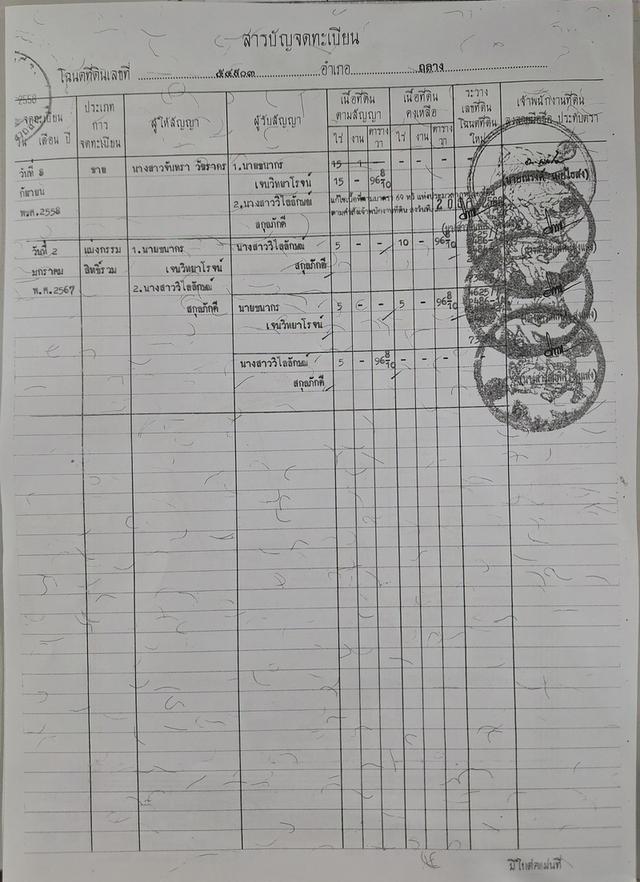 สารบัญจดทะเบียน
โฉนดที่ดินเลขที่ ๕๔๙๐๓ อำเภอ ถลาง
จดทะเบียน วัน เดือน ปี
ประเภทการจดทะเบียน
ผู้ให้สัญญา
ผู้รับสัญญา
เนื้อที่ดินตามสัญญา
ไร่ งาน ตารางวา
เนื้อที่ดินคงเหลือ
ไร่ งาน ตารางวา
ระวาง เลขที่ดิน โฉนดที่ดินใหม่
เจ้าพนักงานที่ดิน ลงลายมือชื่อ ประทับตรา
วันที่ 8 ขาย นางสาวจันทรา 1.นายธนากร 15 1 - - - - -
กันยายน เจนวิทยาโรจน์ 15 - 96 8/10
พ.ศ.2558 2.นางสาววิไลลักษณ์
สกุลภักดี
วันที่ 2 แบ่งกรรม 1.นายธนากร นางสาววิไลลักษณ์ 5 - - 10 - 96 8/10
มกราคม สิทธิ์รวม เจนวิทยาโรจน์ สกุลภักดี
พ.ศ.2567 2.นางสาววิไลลักษณ์
สกุลภักดี นายธนากร 5 - - 5 - 96 8/10
เจนวิทยาโรจน์
นางสาววิไลลักษณ์ 5 - 96 8/10 - - -
สกุลภักดี
มีใบต่อแผ่นที่